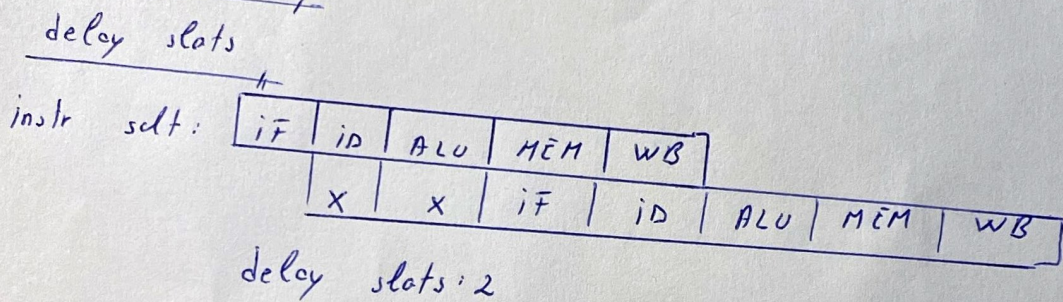 delay slots
instr salt: IF ID ALU MEM WB
X X IF ID ALU MEM WB
delay slots: 2